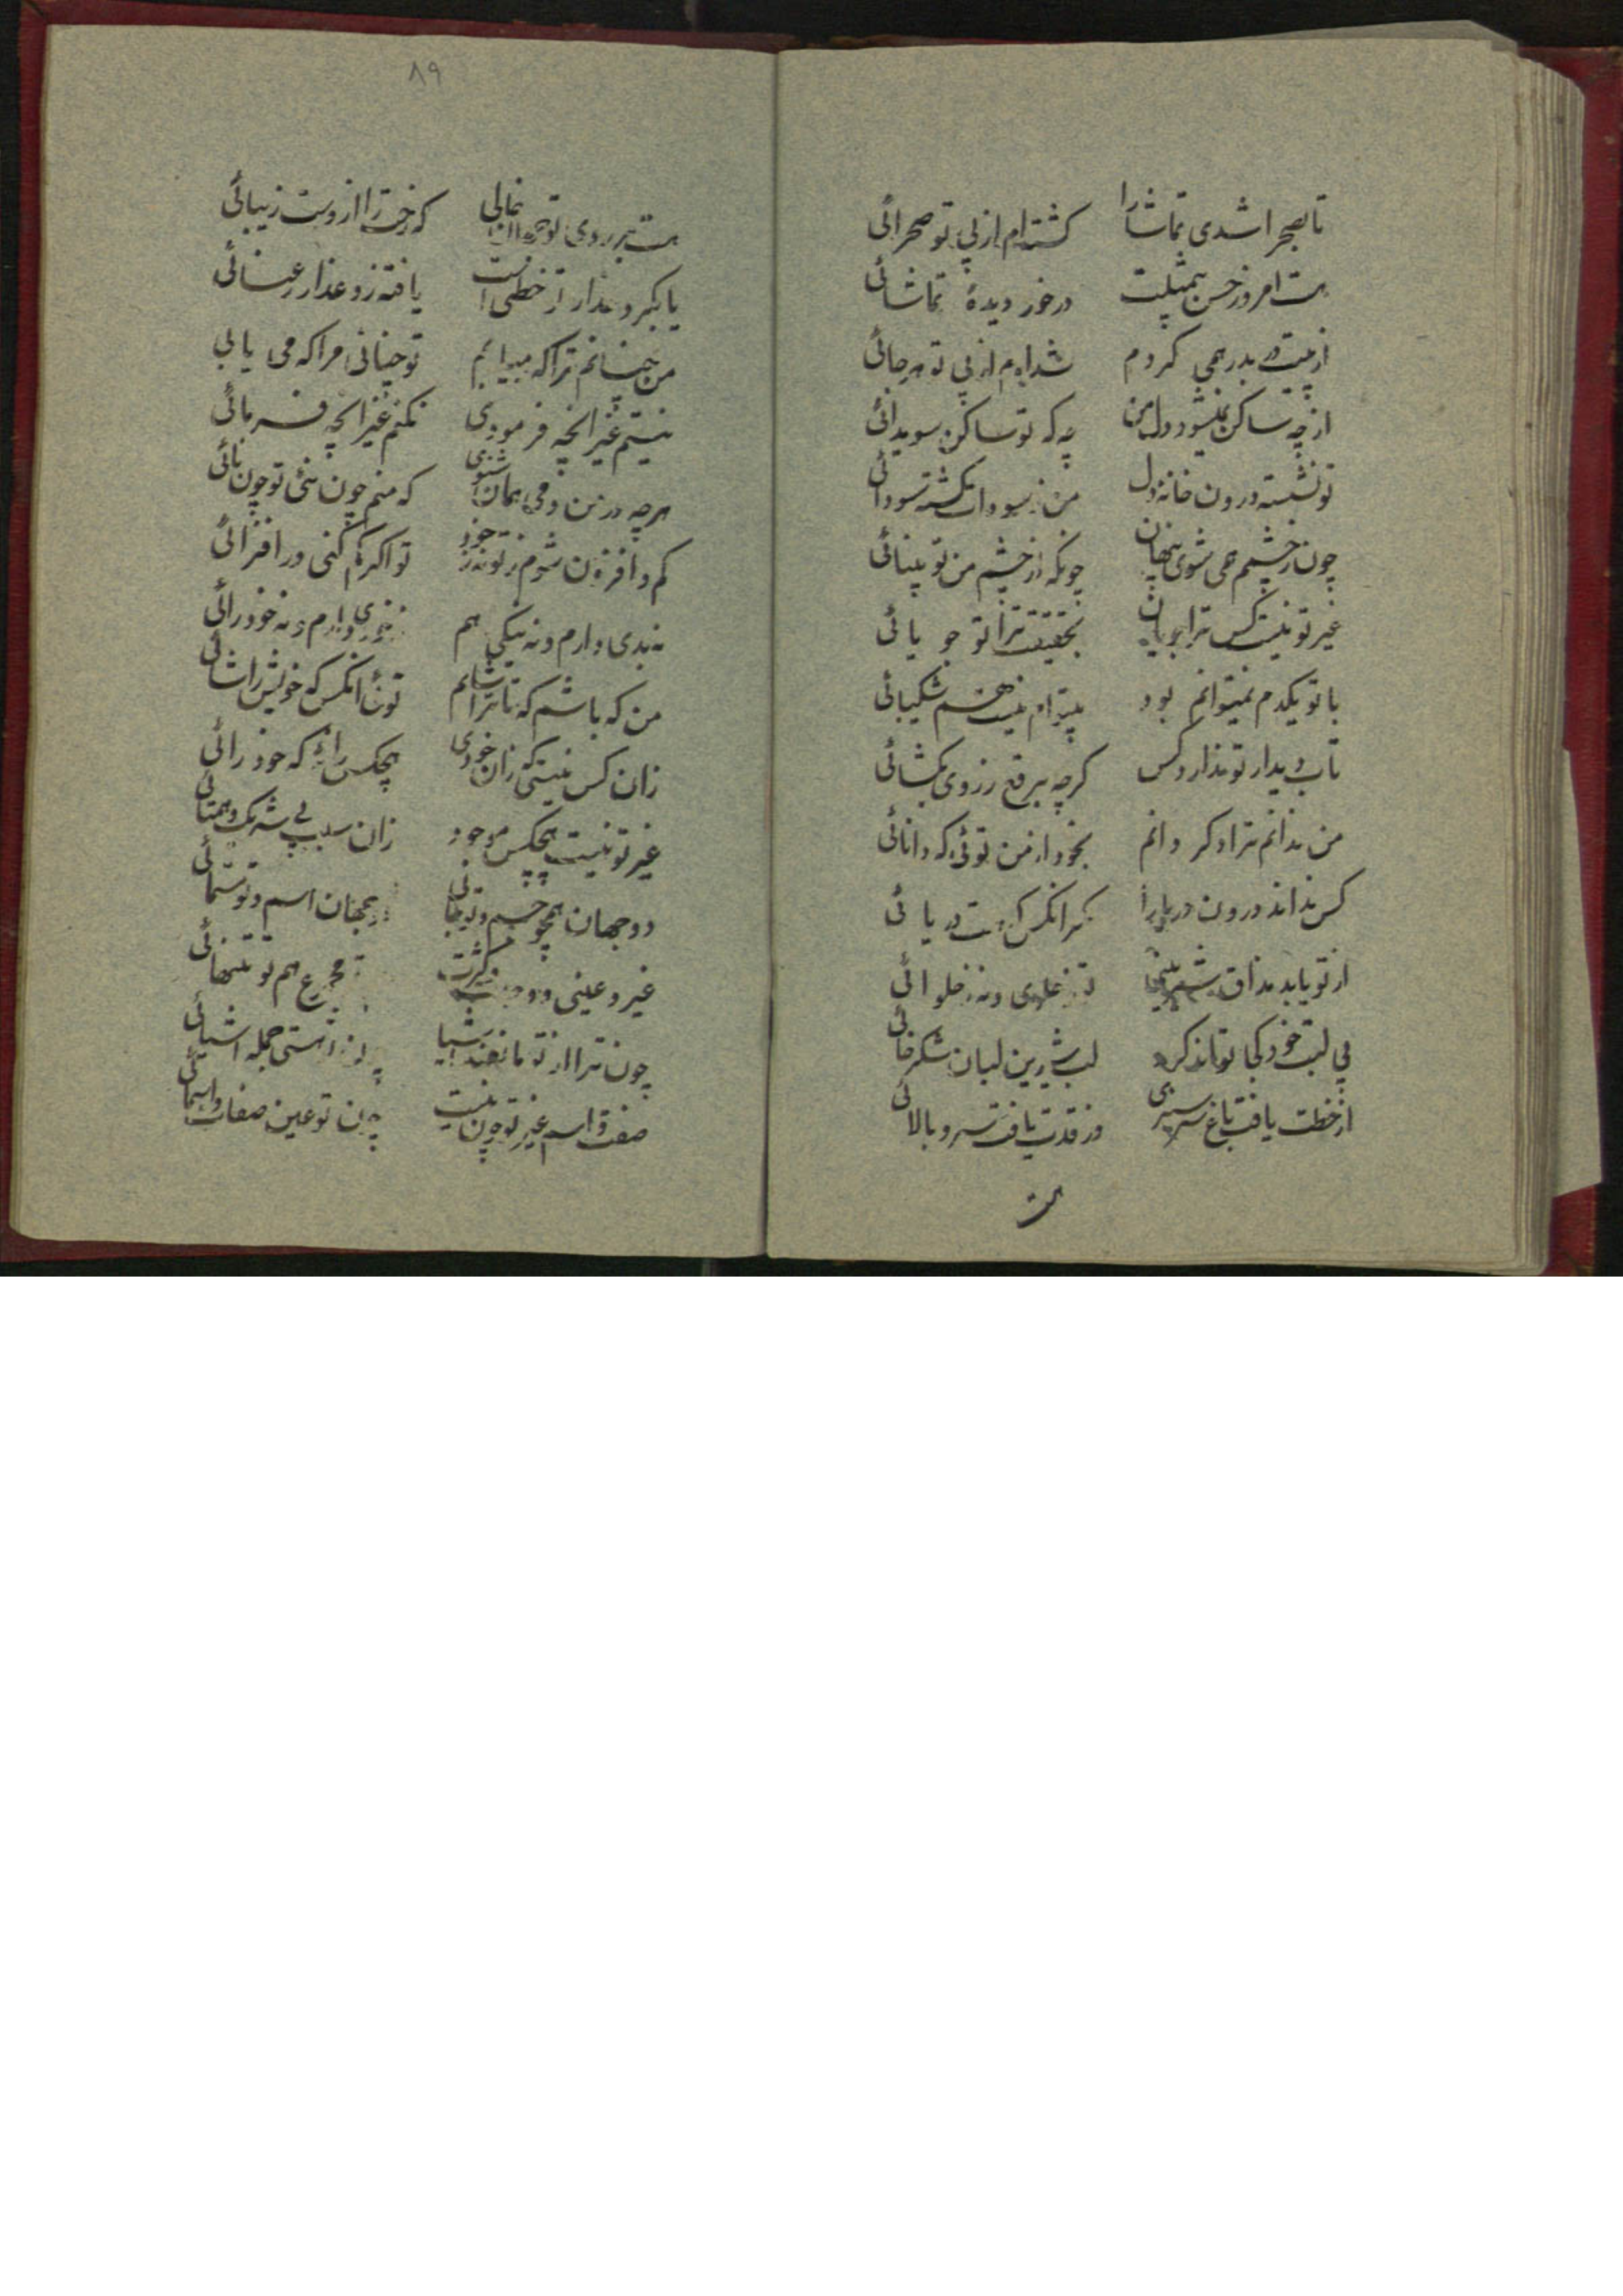 تا بصحرا شدی تماشا را کشته‌ام از پی تو صحرائی
هست امروز حسن بیمثلت در خور دیدهٔ تماشائی
از پیت در بدر همی کردم شده‌ام از پی تو هرجائی
از چه ساکن نمیشود دل من چه که تو ساکن سویدائی
تو نشسته درون خانهٔ دل من ز سودات کشته سودائی
چون ز چشمم می شوی پنهان چونکه از چشم من تو بینائی
غیر تو نیست کس ترا جویان بحقیقت ترا تو جویائی
با تو یکدم نمیتوانم بود بیتوام نیست هم شکیبائی
تاب دیدار تو ندارد کس کرچه برقع ز روی بکشائی
من ندانم ترا و کر دانم بخود از من توئی که دانائی
کس نداند درون دریا را مکر انکس که هست دریائی
از تو یابد مذاق شیرینی
بی لبت خود کجا تواند کرد لب شیرین لبان شکرخائی
از خطت یافت باغ سرسبزی وز قدت یافت سرو بالائی
هست
۸۹
هست بر روی تو جهان خالی که رخت را ازوست زیبائی
یا بکرد عذار تو خطی است یافته زو عذار رعنائی
من چنانم ترا که میابم تو چنانی مرا که می یابی
نیستم غیر انچه فرمودی نکنم غیر انچه فرمائی
هرچه در من دمی همان شنوی که منم چون نئی تو چون نائی
کم و افزون شوم ز تو نه ز خود تو اکر کم کنی ور افزائی
نه بدی دارم و نه نیکی هم نه خودی دارم و نه خودرائی
من که باشم که تا ترا شایم توئی انکس که خویش را شائی
زان کس نیستی که زان خودی هیچکس را نه که خود رائی
غیر تو نیست هیچکس موجود زان سبب بی شریک و همتائی
دو جهان همچو جسم و تو جانی جهان اسم و تو مسمائی
غیر و عینی و وحدت و کثرت مجموع هم تو تنهائی
چون ترا از تو مانعند اشیا جمله اشیائی
صفت و اسم غیر تو چون نیست چون تو عین صفات و اسمائی